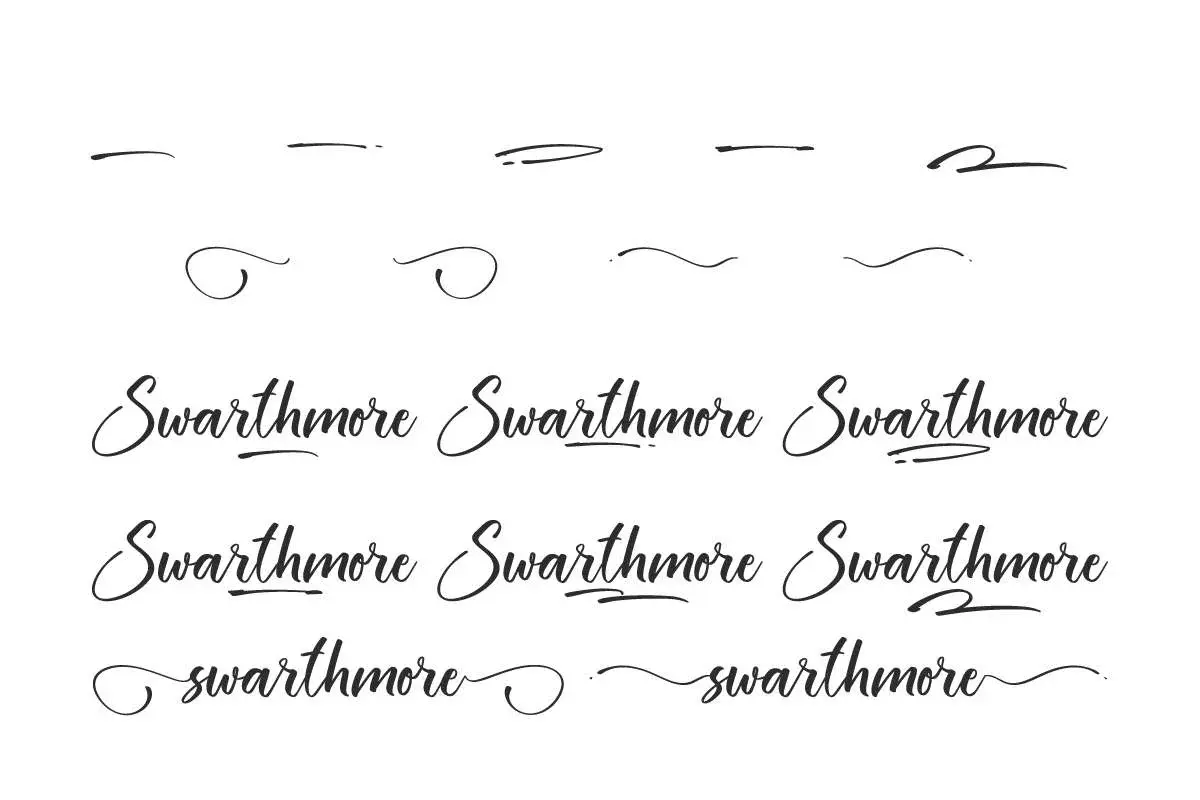 Swarthmore Swarthmore Swarthmore
Swarthmore Swarthmore Swarthmore
swarthmore swarthmore